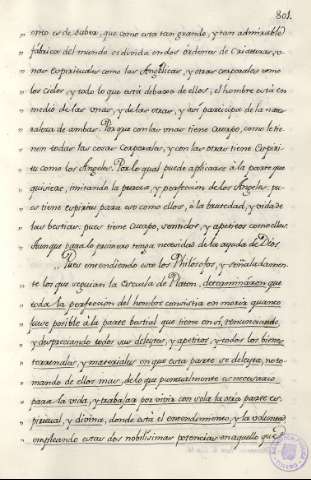 801.
„ esto es de saber, que como esta tan grande, y tan admirable
„ fábrica del mundo es divida en dos órdenes de Criaturas, u-
„ nas Espirituales como las Angélicas, y otras corporales como
„ los cielos, y todo lo que está debaxo de ellos; el hombre está en
„ medio de las unas, y de las otras, y así participa de la natu-
„ raleza de ambas. Porque con las unas tiene Cuerpo, como le tie-
„ nen todas las cosas corporales, y con las otras tiene Espiri-
„ tu como los Angeles. Por lo qual puede aplicarse à la parte que
„ quisiere, imitando la pureza, y perfeccion de los Angeles, pu-
„ es tiene espíritu para eso como ellos, ò la brutedad, y vida de
„ las bestias; pues tiene Cuerpo, sentidos, y apetitos como ellas.
„ Aunque para lo primero tenga necesidad de la ayuda de Dios.
„ Pues entendiendo esto los Philósofos, y señaladamen-
„ te los que seguian la Escuela de Platon, determináron que
„ toda la perfeccion del hombre consistia en morir quanto
„ fuese posible à la parte bestial que tiene en sí, renunciando,
„ y despreciando todos sus deleytes, y apetitos, y todos los bienes
„ terrenales, y materiales en que esta parte se deleyta, no to-
„ mando de ellos mas, de lo que puntualmente es necesario
„ para la vida, y trabajar por vivir con sola la otra parte es-
„ piritual, y divina, donde está el entendimiento, y la voluntad
„ empleando estas dos nobilísimas potencias en aquello que